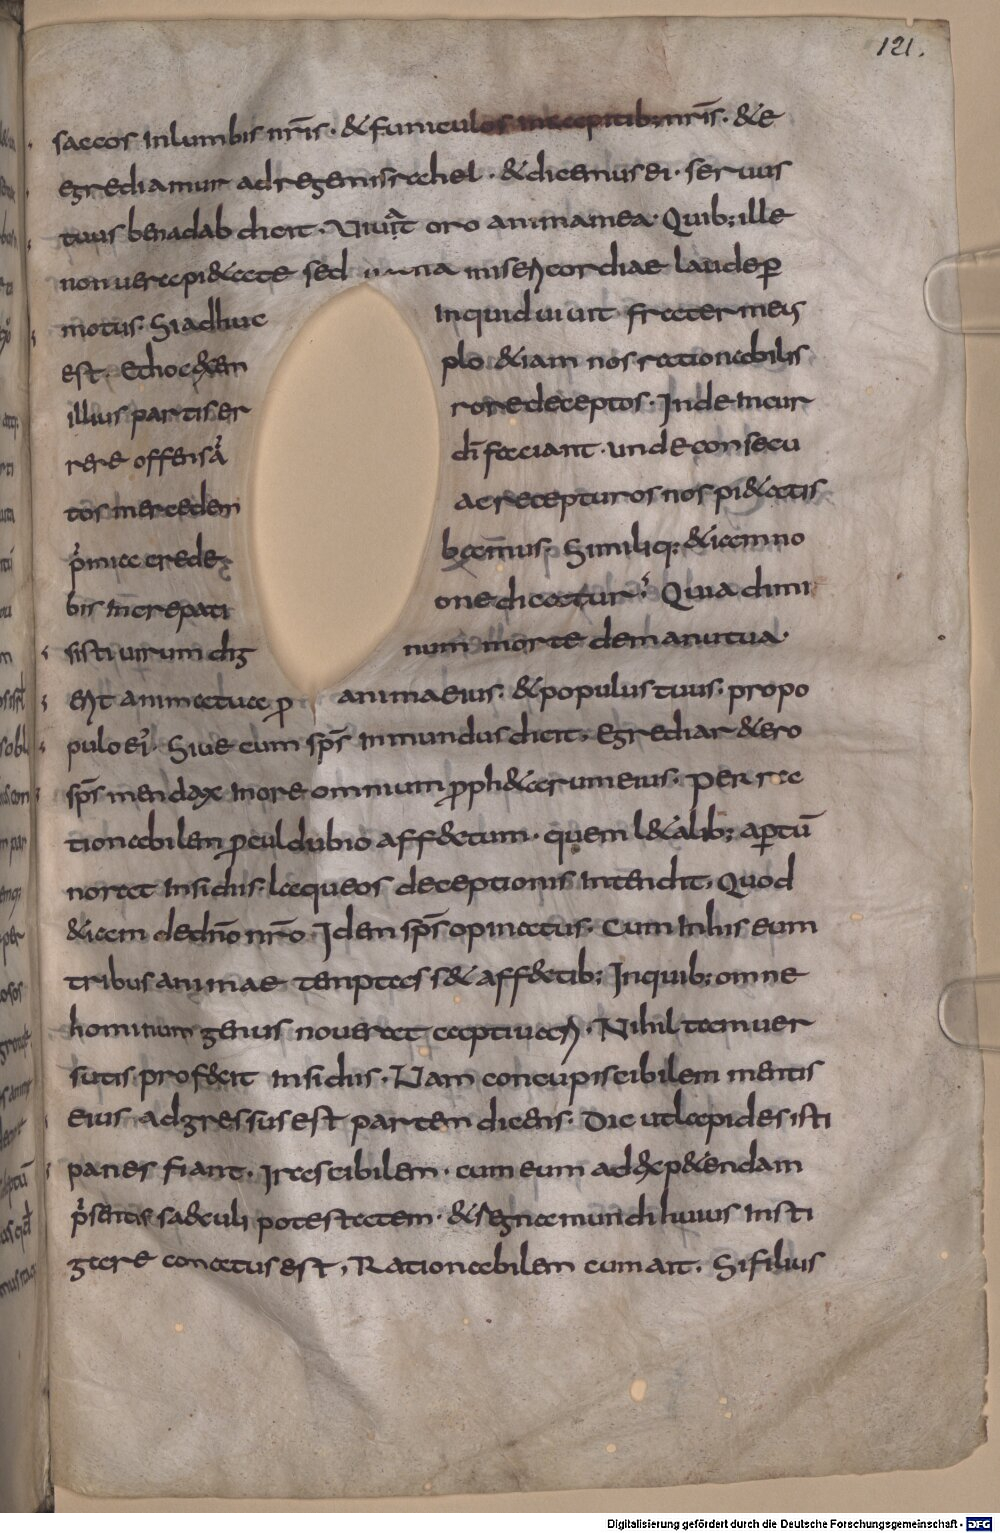 121.
saccos inlumbis nr̄is · & funiculos incapitib; nr̄is · & e
egrediamur adregem israhel · & dicemus ei · seruus
tuus benadab dicit · Uiuat oro anima mea · Quib; ille
non uera pi&ate sed uana misericordiae laude ꝑ
motus · Siadhuc inquid uiuit frater meus
est · Et hoc exem plo &iam nos rationabilis
illius partis er rore deceptos · Inde incur
rere offensā di faciant · unde consecu
tos mercedem ac recepturos nos pi&atis
p̄mia crede bamus · Similiq; &iam no
bis increpati one dicatur · Quia dimi
sisti uirum dig num morte demanu tua ·
erit anima tua ꝓ anima eius · & populus tuus · pro po
pulo ei' · Siue cum sp̄s inmundus dicit · Egrediar & ero
sp̄s mendax inore omnium ꝓph&arum eius · Per ra
tionabilem ꝓculdubio aff&tum · quem l&alib; aꝑtū
norat insidiis · laqueos deceptionis intendit · Quod
&iam de dn̄o nr̄o Idem sp̄s opinatus · Cum inhis eum
tribus animae temptas s& aff&tib; Inquib; omne
hominum genus nouerat captiuari · Nihil tam uer
sutis prof&cit insidiis · Nam concupiscibilem mentis
eius adgressus est partem dicens · Dic ut lapides isti
panes fiant · Irascibilem · cum eum ad exp&endam
p̄sentis saeculi potestatem · & regna mundi huius insti
gare conatus est · Rationabilem cum ait · Si filius
Digitalisierung gefördert durch die Deutsche Forschungsgemeinschaft - DFG